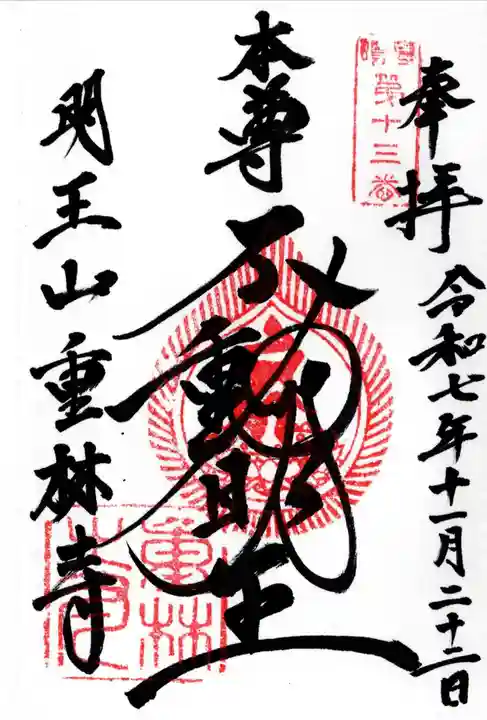 奉拝
令和七年十一月二十二日
第十三番
本尊
不動明王
明王山重林寺
重林